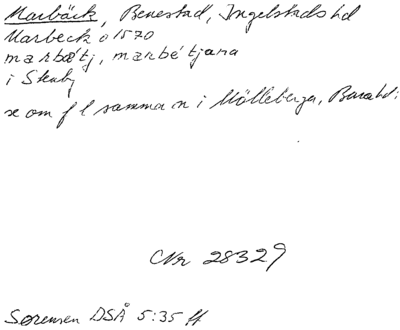 Marbäck, Benestad, Ingelstads hd
Marbeck o 1570
marbætj, marbétjana
i Skabj
se om f l samma n i Mölleberga, Bara hd:
Nr 28329
Sørensen DSÅ 5:35 ff